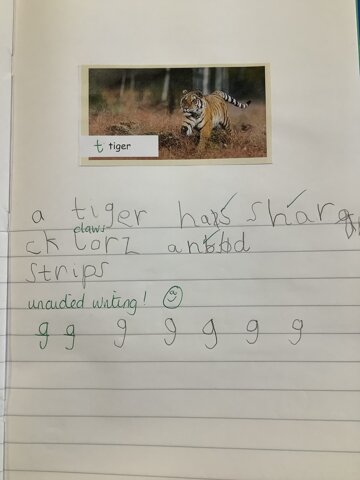 t tiger
a tiger has shar
claws
ck lorz and
strips
unaided writing!
g g g g g g g